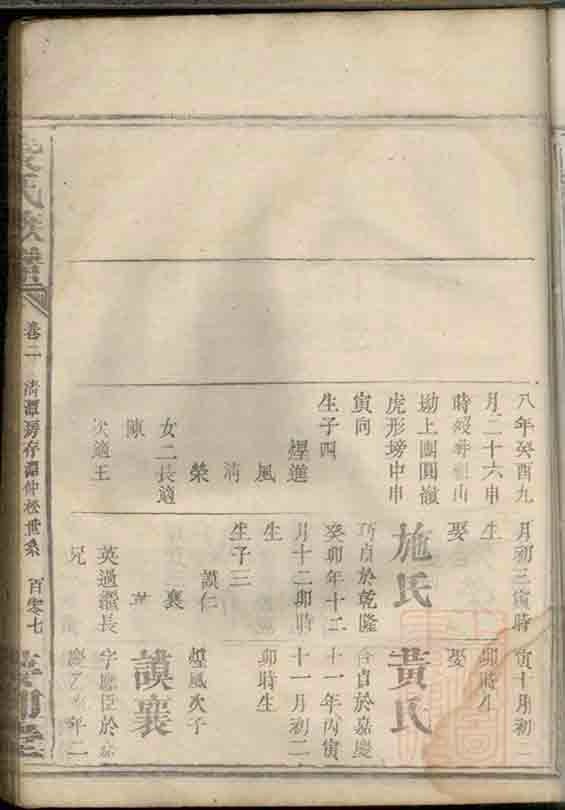 八年癸酉九
月二十六申
時經葬祖山
坳上團圓嶺
虎形塝中申
寅向
生子四
煋進
風
清
榮
女二長適
陳
次適王
月初三寅時
生
娶
施氏
巧貞於乾隆
癸卯年十二
月十二卯時
生
生子三
謨仁
襄
英過繼長
兄
寅十月初二
卯時生
娶
黃氏
合貞於嘉慶
十一年丙寅
十一月初二
卯時生
煋風次子
謨襄
字應臣於嘉
慶乙丑年二
氏族譜
卷二
清潭房存潛仲松世系
百零七